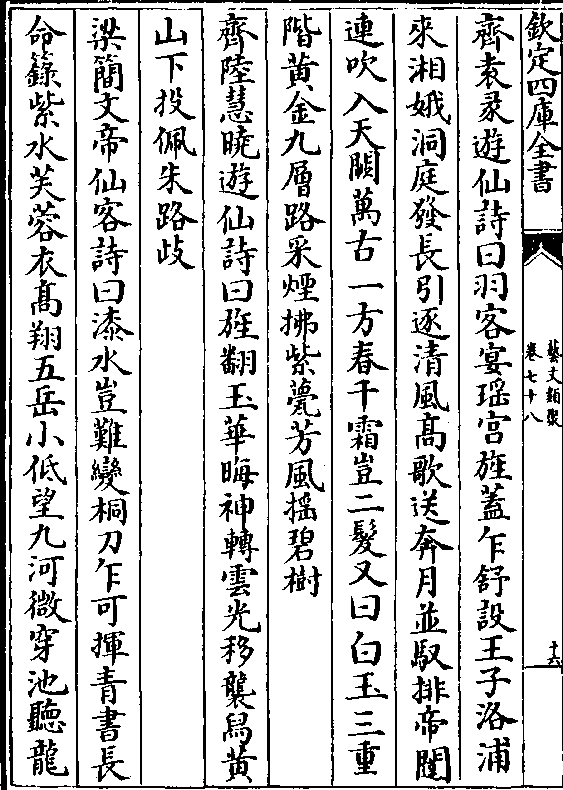 欽定四庫全書
藝文類聚
卷七十八
十六
齊袁彖遊仙詩曰羽客宴瑶宮旌蓋乍舒設王子洛浦
來湘娥洞庭發長引逐清風髙歌送奔月並馭排帝閽
連吹入天闕萬古一方春千霜豈二髮又曰白玉三重
階黄金九層路采煙拂紫甍芳風搖碧樹
齊陸慧曉遊仙詩曰旌翻玉華晦神轉雲光移襲舄黄
山下投佩朱路歧
梁簡文帝仙客詩曰漆水豈難變桐刀乍可揮青書長
命籙紫水芙蓉衣髙翔五岳小低望九河微穿池聽龍